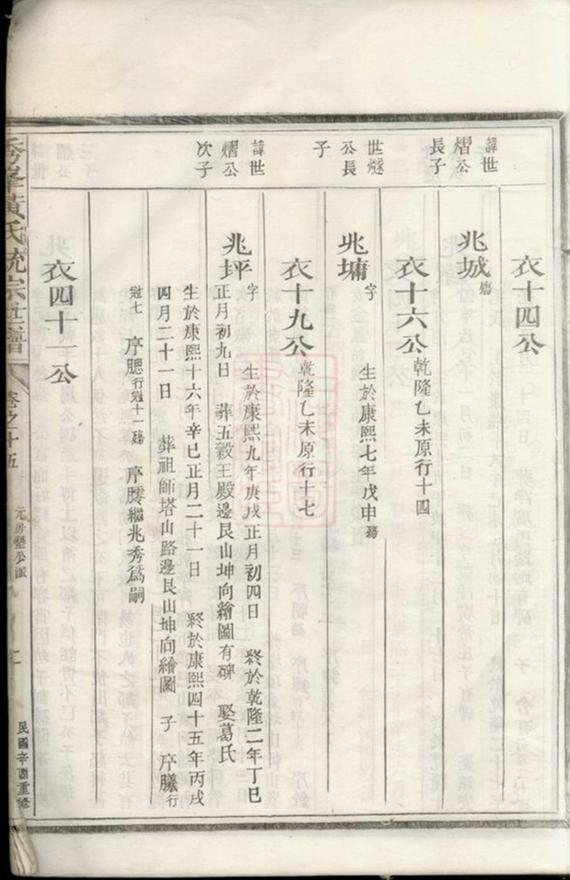 衣十四公
諱世熠公長子
兆城 殤
衣十六公 乾隆乙未原行十四
世燧公長子
兆墉 字 生於康熙七年戊申 殤
衣十九公 乾隆乙未原行十七
諱世熠公次子
兆坪 字 生於康熙九年庚戌正月初四日 終於乾隆二年丁巳
正月初九日 葬五穀王殿邊艮山坤向繪圖有碑 娶葛氏
生於康熙十六年辛巳正月二十一日 終於康熙四十五年丙戌
四月二十一日 葬祖師塔山路邊艮山坤向繪圖 子 序𦢊行
冠七 序騘行冠十一殤 序𦢊繼兆秀爲嗣
衣四十一公
秀峯黃氏統宗世譜 卷之十五 元房 公派
民國辛酉重修